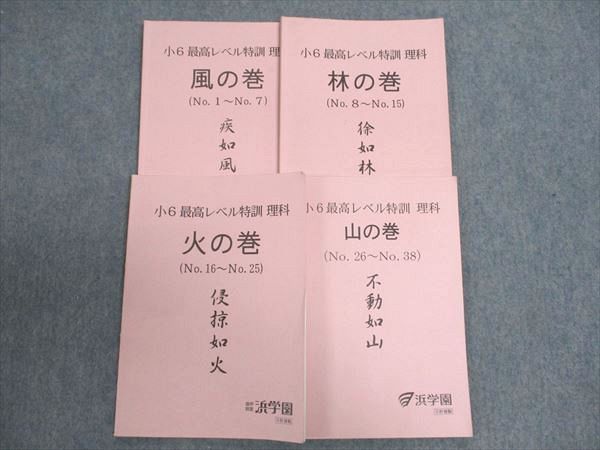 小6 最高レベル特訓 理
風の巻
(No. 1～No. 7)
疾
如
風
小6 最高レベル特訓 理科
林の巻
(No. 8～No. 15)
徐
如
林
小6 最高レベル特訓 理科
火の巻
(No. 16～No. 25)
侵
掠
如
火
浜学園
小6 最高レベル特訓 理科
山の巻
(No. 26～No. 38)
不
動
如
山
浜学園